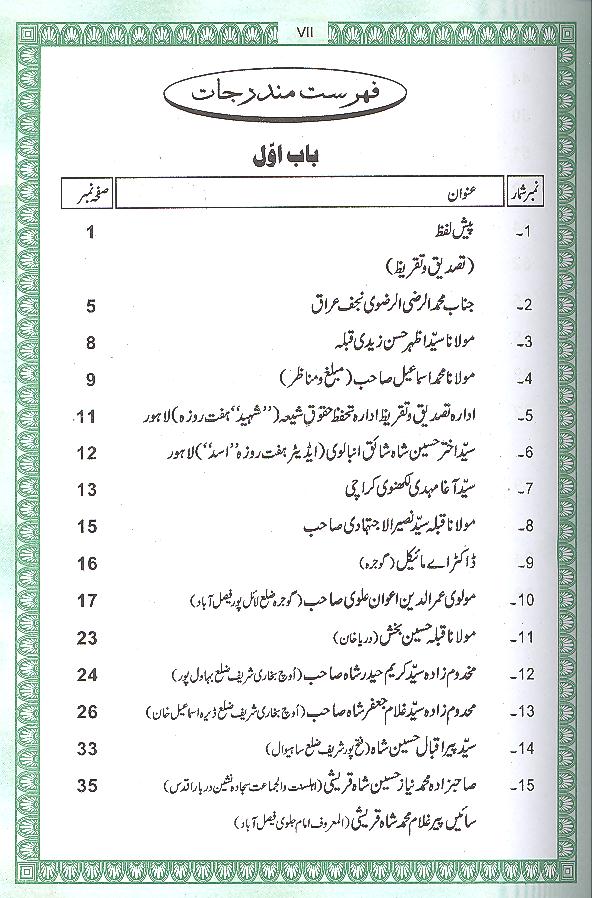 VII
فہرست مندرجات
باب اوّل
نمبر شمار عنوان صفحہ نمبر
1۔ پیش لفظ 1
(تصدیق و تقریظ)
2۔ جناب محمد الرضی الرضوی نجف عراق 5
3۔ مولانا سیّد اظہر حسن زیدی قبلہ 8
4۔ مولانا محمد اسماعیل صاحب (مبلغ و مناظر) 9
5۔ ادارہ تصدیق و تقریظ ادارہ تحفظ حقوقِ شیعہ (”شہید“ ہفت روزہ) لاہور 11
6۔ سیّد اختر حسین شاہ شائق انبالوی (ایڈیٹر ہفت روزہ ”اسد“) لاہور 12
7۔ سیّد آغا مہدی لکھنوی کراچی 13
8۔ مولانا قبلہ سیّد نصیر الاجتہادی صاحب 15
9۔ ڈاکٹر اے مائیکل (گوجرہ) 16
10۔ مولوی عمر الدین اعوان علوی صاحب (گوجرہ ضلع لائل پور فیصل آباد) 17
11۔ مولانا قبلہ حسین بخش (دریا خان) 23
12۔ مخدوم زادہ سیّد کریم حیدر شاہ صاحب (اُوچ بخاری شریف ضلع بہاول پور) 24
13۔ مخدوم زادہ سیّد غلام جعفر شاہ صاحب (اُوچ بخاری شریف ضلع ڈیرہ اسماعیل خان) 26
14۔ سیّد پیر اقبال حسین شاہ (فتح پور شریف ضلع ساہیوال) 33
15۔ صاحبزادہ محمد نیاز حسین شاہ قریشی (اہلسنت والجماعت سجادہ نشین دربار اقدس) 35
سائیں پیر غلام محمد شاہ قریشی (المعروف امام جلوی فیصل آباد)